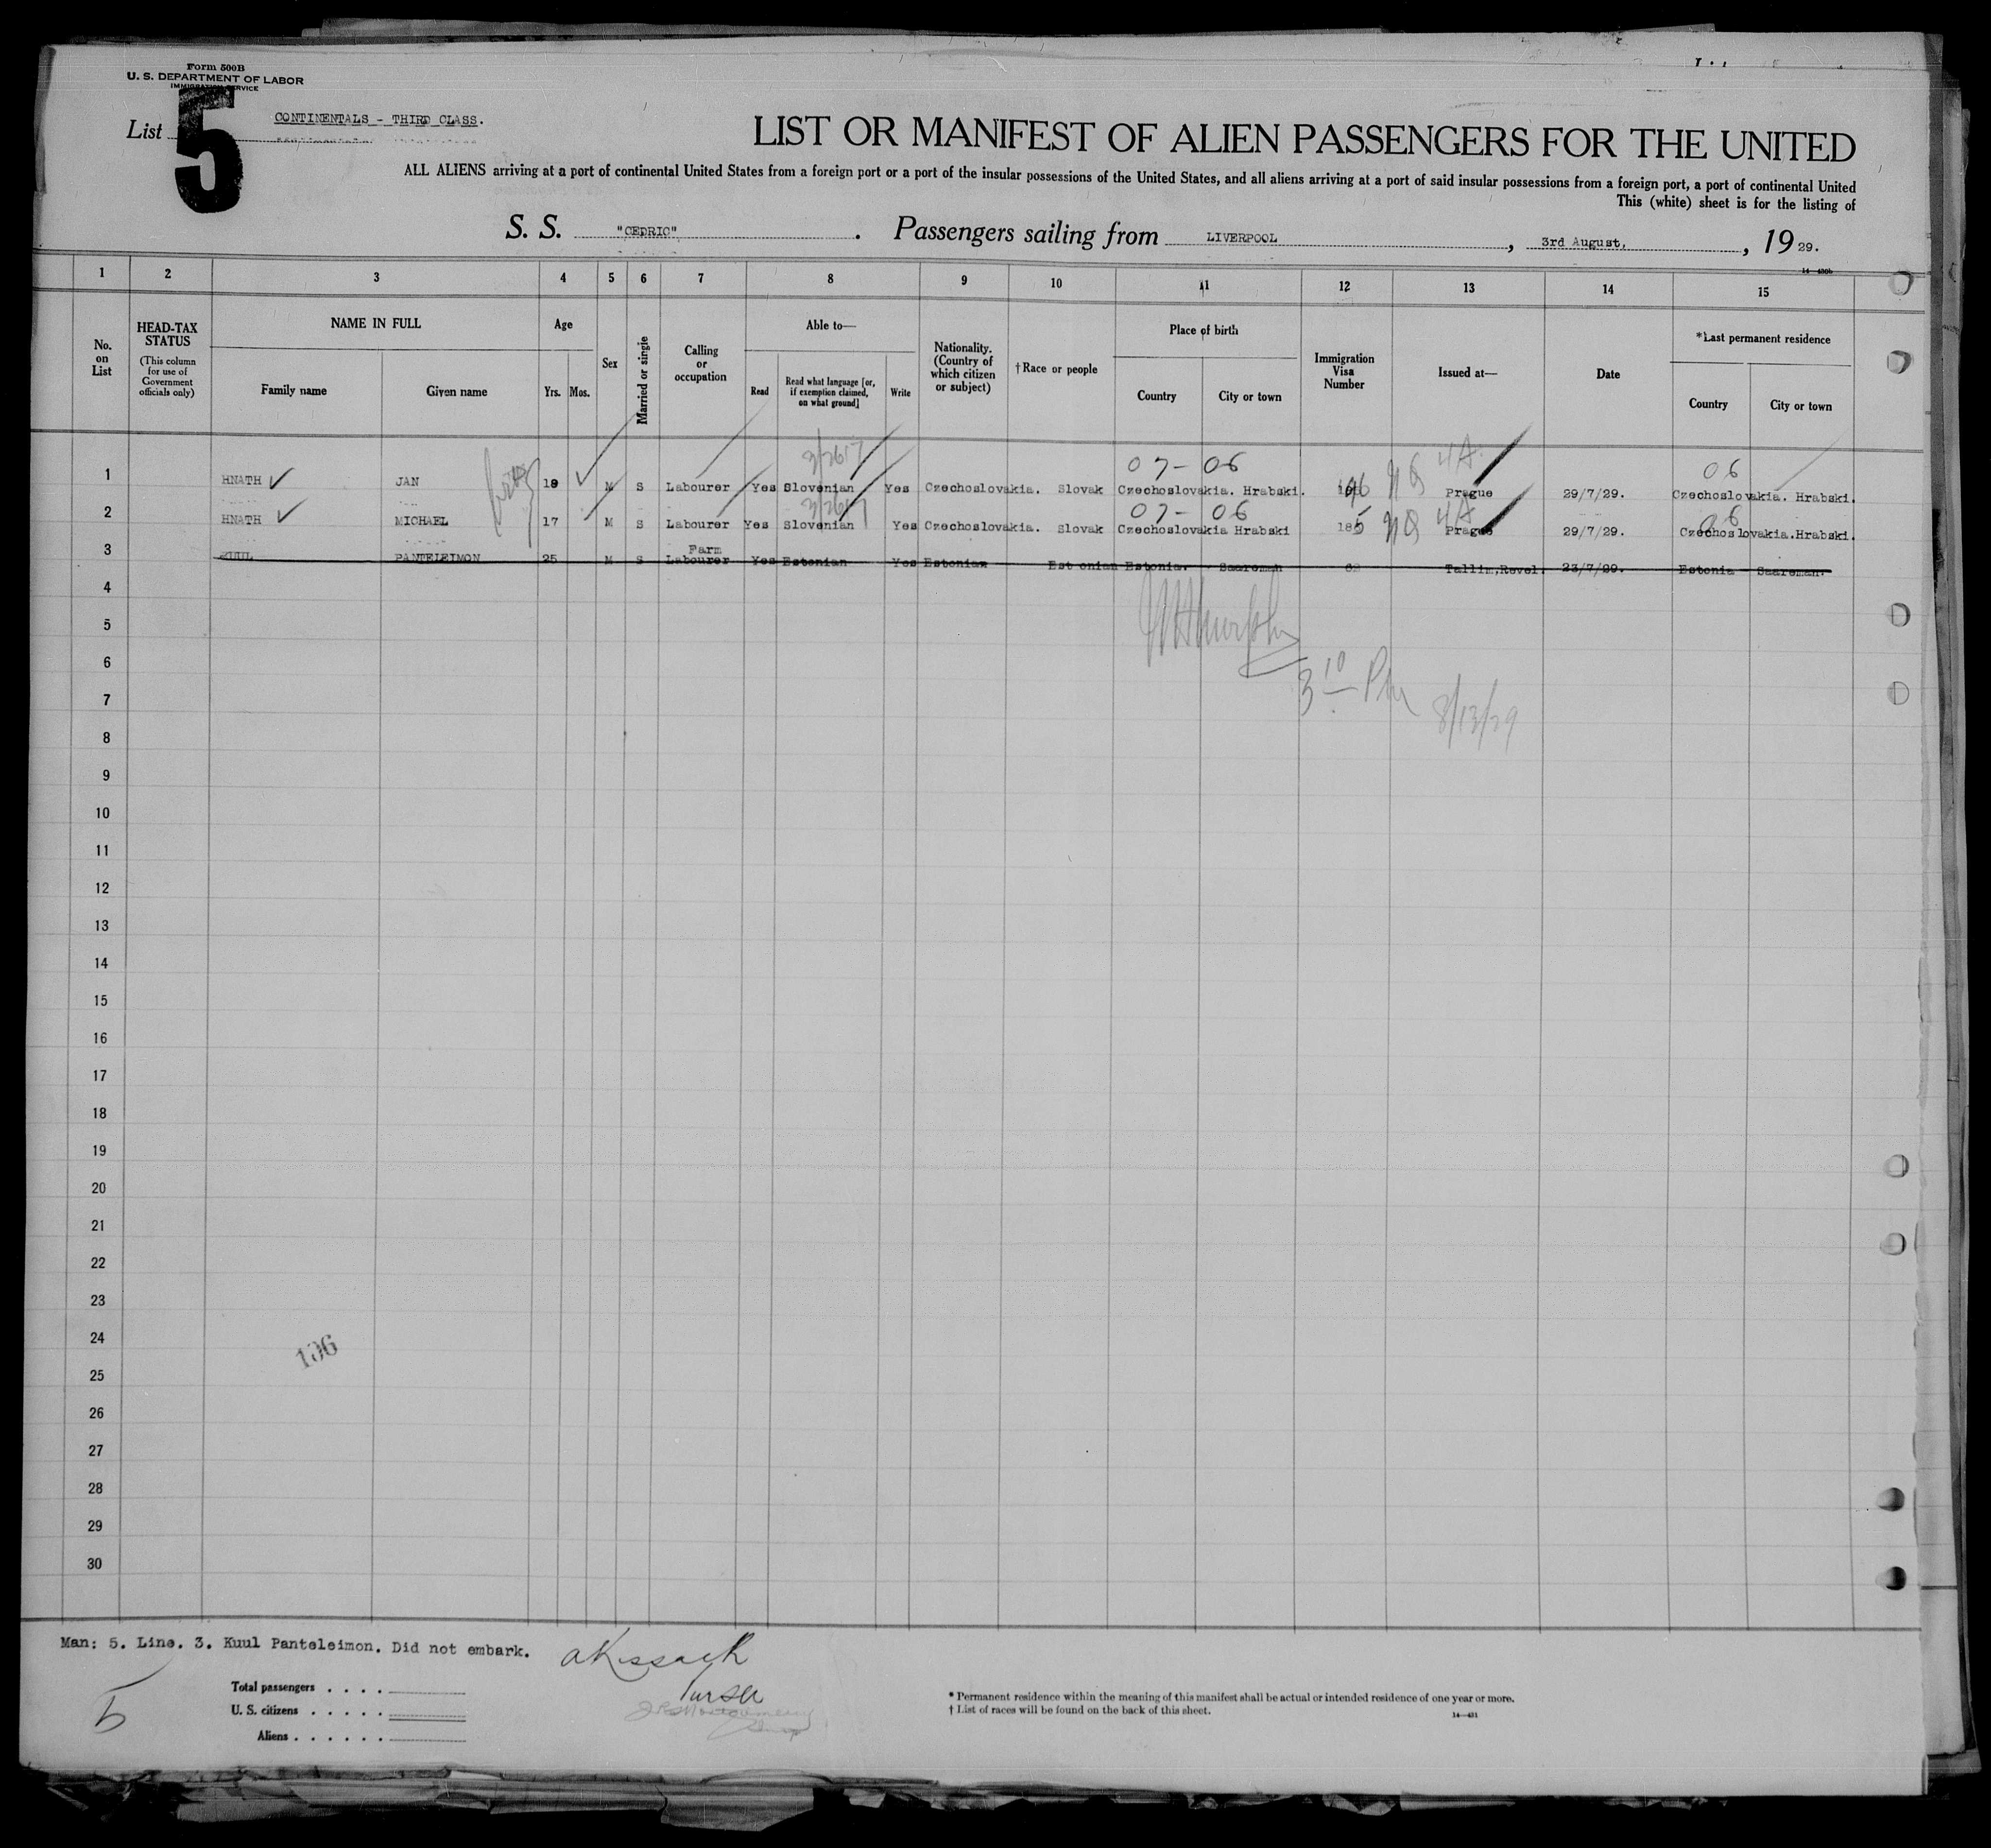 Form 500B
U. S. DEPARTMENT OF LABOR
IMMIGRATION SERVICE
List 5
CONTINENTALS - THIRD CLASS.
LIST OR MANIFEST OF ALIEN PASSENGERS FOR THE UNITED
ALL ALIENS arriving at a port of continental United States from a foreign port or a port of the insular possessions of the United States, and all aliens arriving at a port of said insular possessions from a foreign port, a port of continental United
This (white) sheet is for the listing of
S. S. "CEDRIC". Passengers sailing from LIVERPOOL, 3rd August, 1929.
1 2 3 4 5 6 7 8 9 10 11 12 13 14 15
No. on List
HEAD-TAX STATUS
(This column for use of Government officials only)
NAME IN FULL
Family name
Given name
Age
Yrs.
Mos.
Sex
Married or single
Calling or occupation
Able to—
Read
Read what language [or, if exemption claimed, on what ground]
Write
Nationality. (Country of which citizen or subject)
†Race or people
Place of birth
Country
City or town
Immigration Visa Number
Issued at—
Date
*Last permanent residence
Country
City or town
07- 06 4A. 06
1 HNATH JAN M S Labourer Yes Slovenian Yes Czechoslovakia. Slovak Czechoslovakia. Hrabski. Prague 29/7/29. Czechoslovakia. Hrabski.
07- 06 4A 06
2 HNATH MICHAEL 17 M S Labourer Yes Slovenian Yes Czechoslovakia. Slovak Czechoslovakia Hrabski 185 Prague 29/7/29. Czechoslovakia. Hrabski.
3 KUUL PANTELEIMON 25 M S Farm Labourer Yes Estonian Yes Estonian Estonian Estonia. Saareman Tallin,Revel. 23/7/29. Estonia Saareman.
4
5
6
3 10 PM
7
8/13/29
8
9
10
11
12
13
14
15
16
17
18
19
20
21
22
23
24
106
25
26
27
28
29
30
Man: 5. Line. 3. Kuul Panteleimon. Did not embark.
Purser
5
Total passengers . . . .
U. S. citizens . . . . .
Aliens . . . . . .
* Permanent residence within the meaning of this manifest shall be actual or intended residence of one year or more.
† List of races will be found on the back of this sheet.
14—431